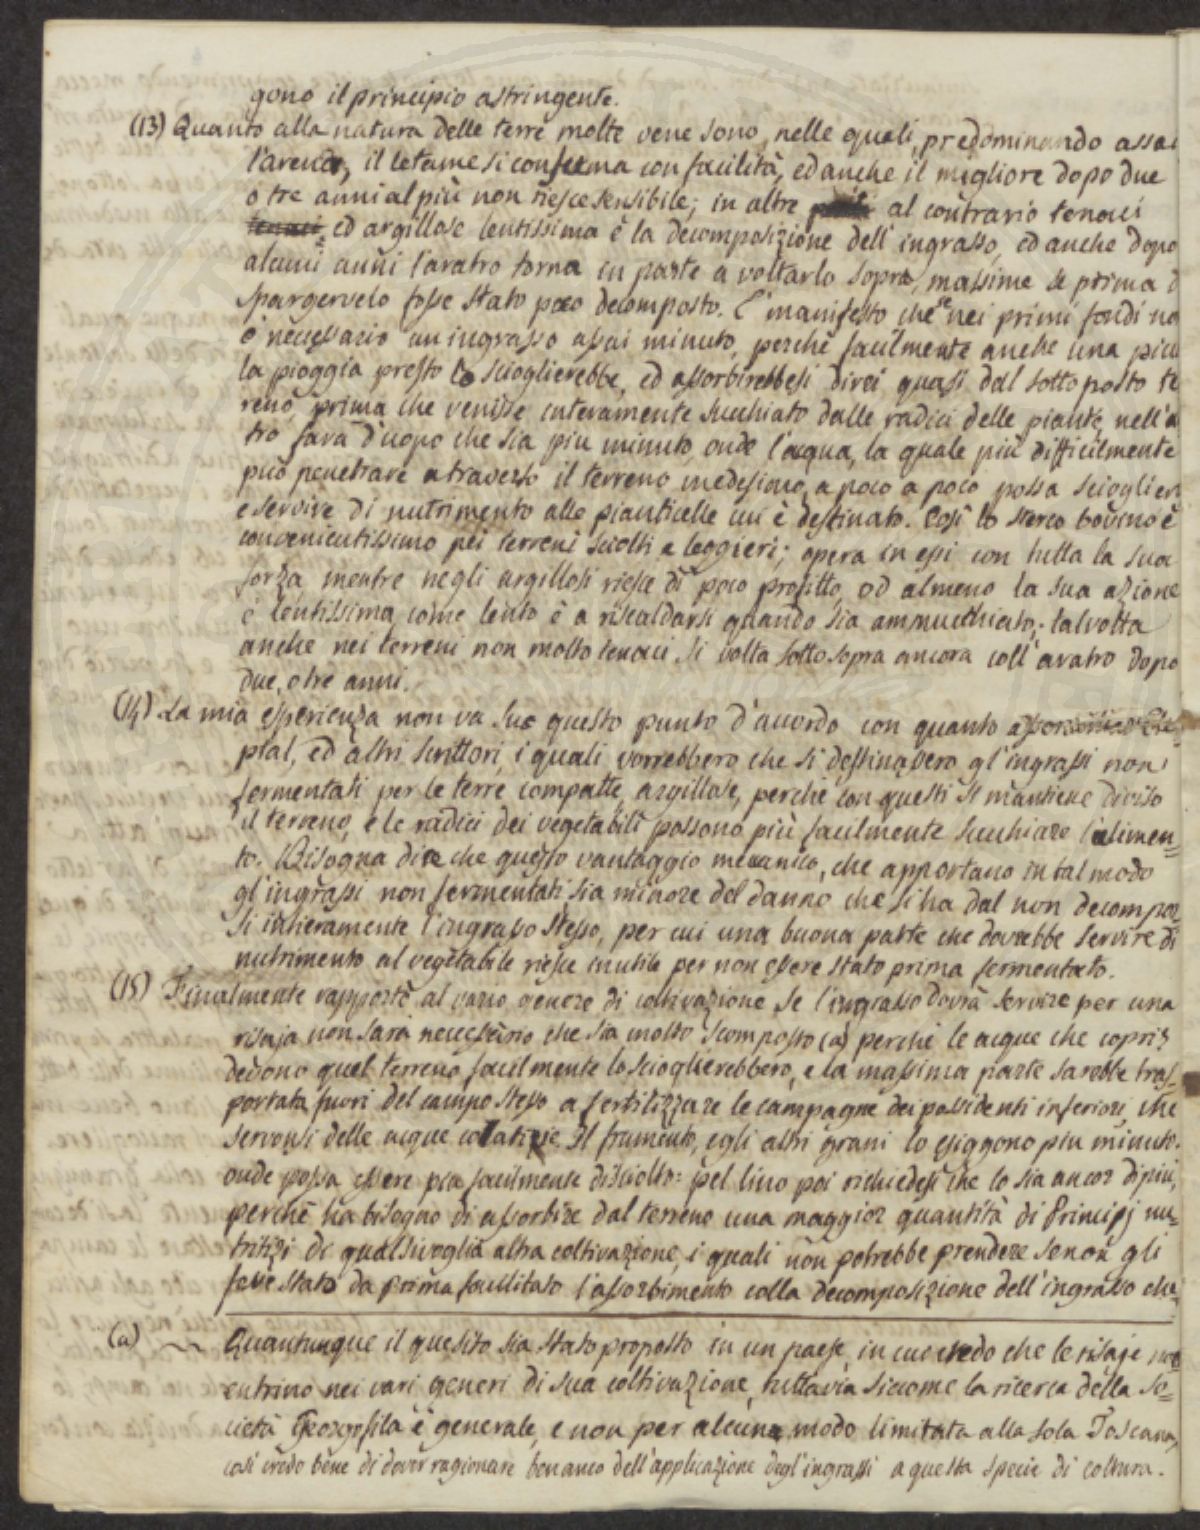 gono il principio astringente.
(13) Quanto alla natura delle terre molte vene sono, nelle quali, predominando assai
l'arena, il letame si consuma con facilità, ed anche il migliore dopo due
o tre anni al più non riesce sensibile; in altre al contrario tenaci
tenaci ed argillose lentissima è la decomposizione dell'ingrasso, ed anche dopo
alcuni anni l'aratro torna in parte a voltarlo sopra, massime se prima d
spargervelo fosse stato poco decomposto. E' manifesto che se nei primi fondi no
è necessario un ingrasso assai minuto, perchè facilmente anche una picc
la pioggia presto lo scioglierebbe, ed assorbirebbesi direi quasi dal sottoposto te
reno prima che venisse interamente succhiato dalle radici delle piante, nell'a
tro farà d'uopo che sia più minuto, onde l'acqua, la quale più difficilmente
può penetrare a traverso il terreno medesimo, a poco a poco possa sciogliere
e servire di nutrimento alle pianticelle cui è destinato. Così lo sterco bovino è
convenientissimo pei terreni sciolti e leggieri; opera in essi con tutta la sua
forza, mentre negli argillosi riesce di poco profitto, od almeno la sua azione
è lentissima, come lento è a riscaldarsi quando sia ammucchiato; talvolta
anche nei terreni non molto tenaci si volta sotto sopra ancora coll'aratro dopo
due, o tre anni.
(14) La mia esperienza non va su questo punto d'accordo con quanto
ptal, ed altri scrittori, i quali vorrebbero che si destinassero gl'ingrassi non
fermentati per le terre compatte, argillose, perchè con questi si mantiene diviso
il terreno, e le radici dei vegetabili possono più facilmente succhiare l'alimen=
to. Bisogna dire che questo vantaggio meccanico, che apportano in tal modo
gl'ingrassi non fermentati sia minore del danno che si ha dal non decompor=
si intieramente l'ingrasso stesso, per cui una buona parte che dovrebbe servire di
nutrimento al vegetabile riesce inutile per non essere stato prima fermentato.
(15) Finalmente rapporto al vario genere di coltivazione se l'ingrasso dovrà servire per una
risaja non sarà necessario che sia molto scomposto (a) perchè le acque che
quel terreno facilmente lo scioglierebbero, e la massima parte sarebbe tras=
portata fuori del campo stesso a fertilizzare le campagne dei possidenti inferiori, che
servonsi delle acque colatizie. Il frumento, e gli altri grani lo esiggono più minuto,
onde possa essere più facilmente disciolto: pel lino poi richiedesi che lo sia ancor di più,
perchè ha bisogno di assorbire dal terreno una maggior quantità di Principj nu=
tritizi di qualsivoglia altra coltivazione, i quali non potrebbe prendere se non gli
fosse stato da prima facilitato l'assorbimento colla decomposizione dell'ingrasso che
(a) Quantunque il quesito sia stato proposto in un paese, in cui credo che le risaje non
entrino nei vari generi di sua coltivazione, tuttavia siccome la ricerca della So=
cietà Georgofila è generale, e non per alcun modo limitata alla sola Toscana,
così credo bene di dover ragionare ben anco dell'applicazione degl'ingrassi a questa specie di coltura.